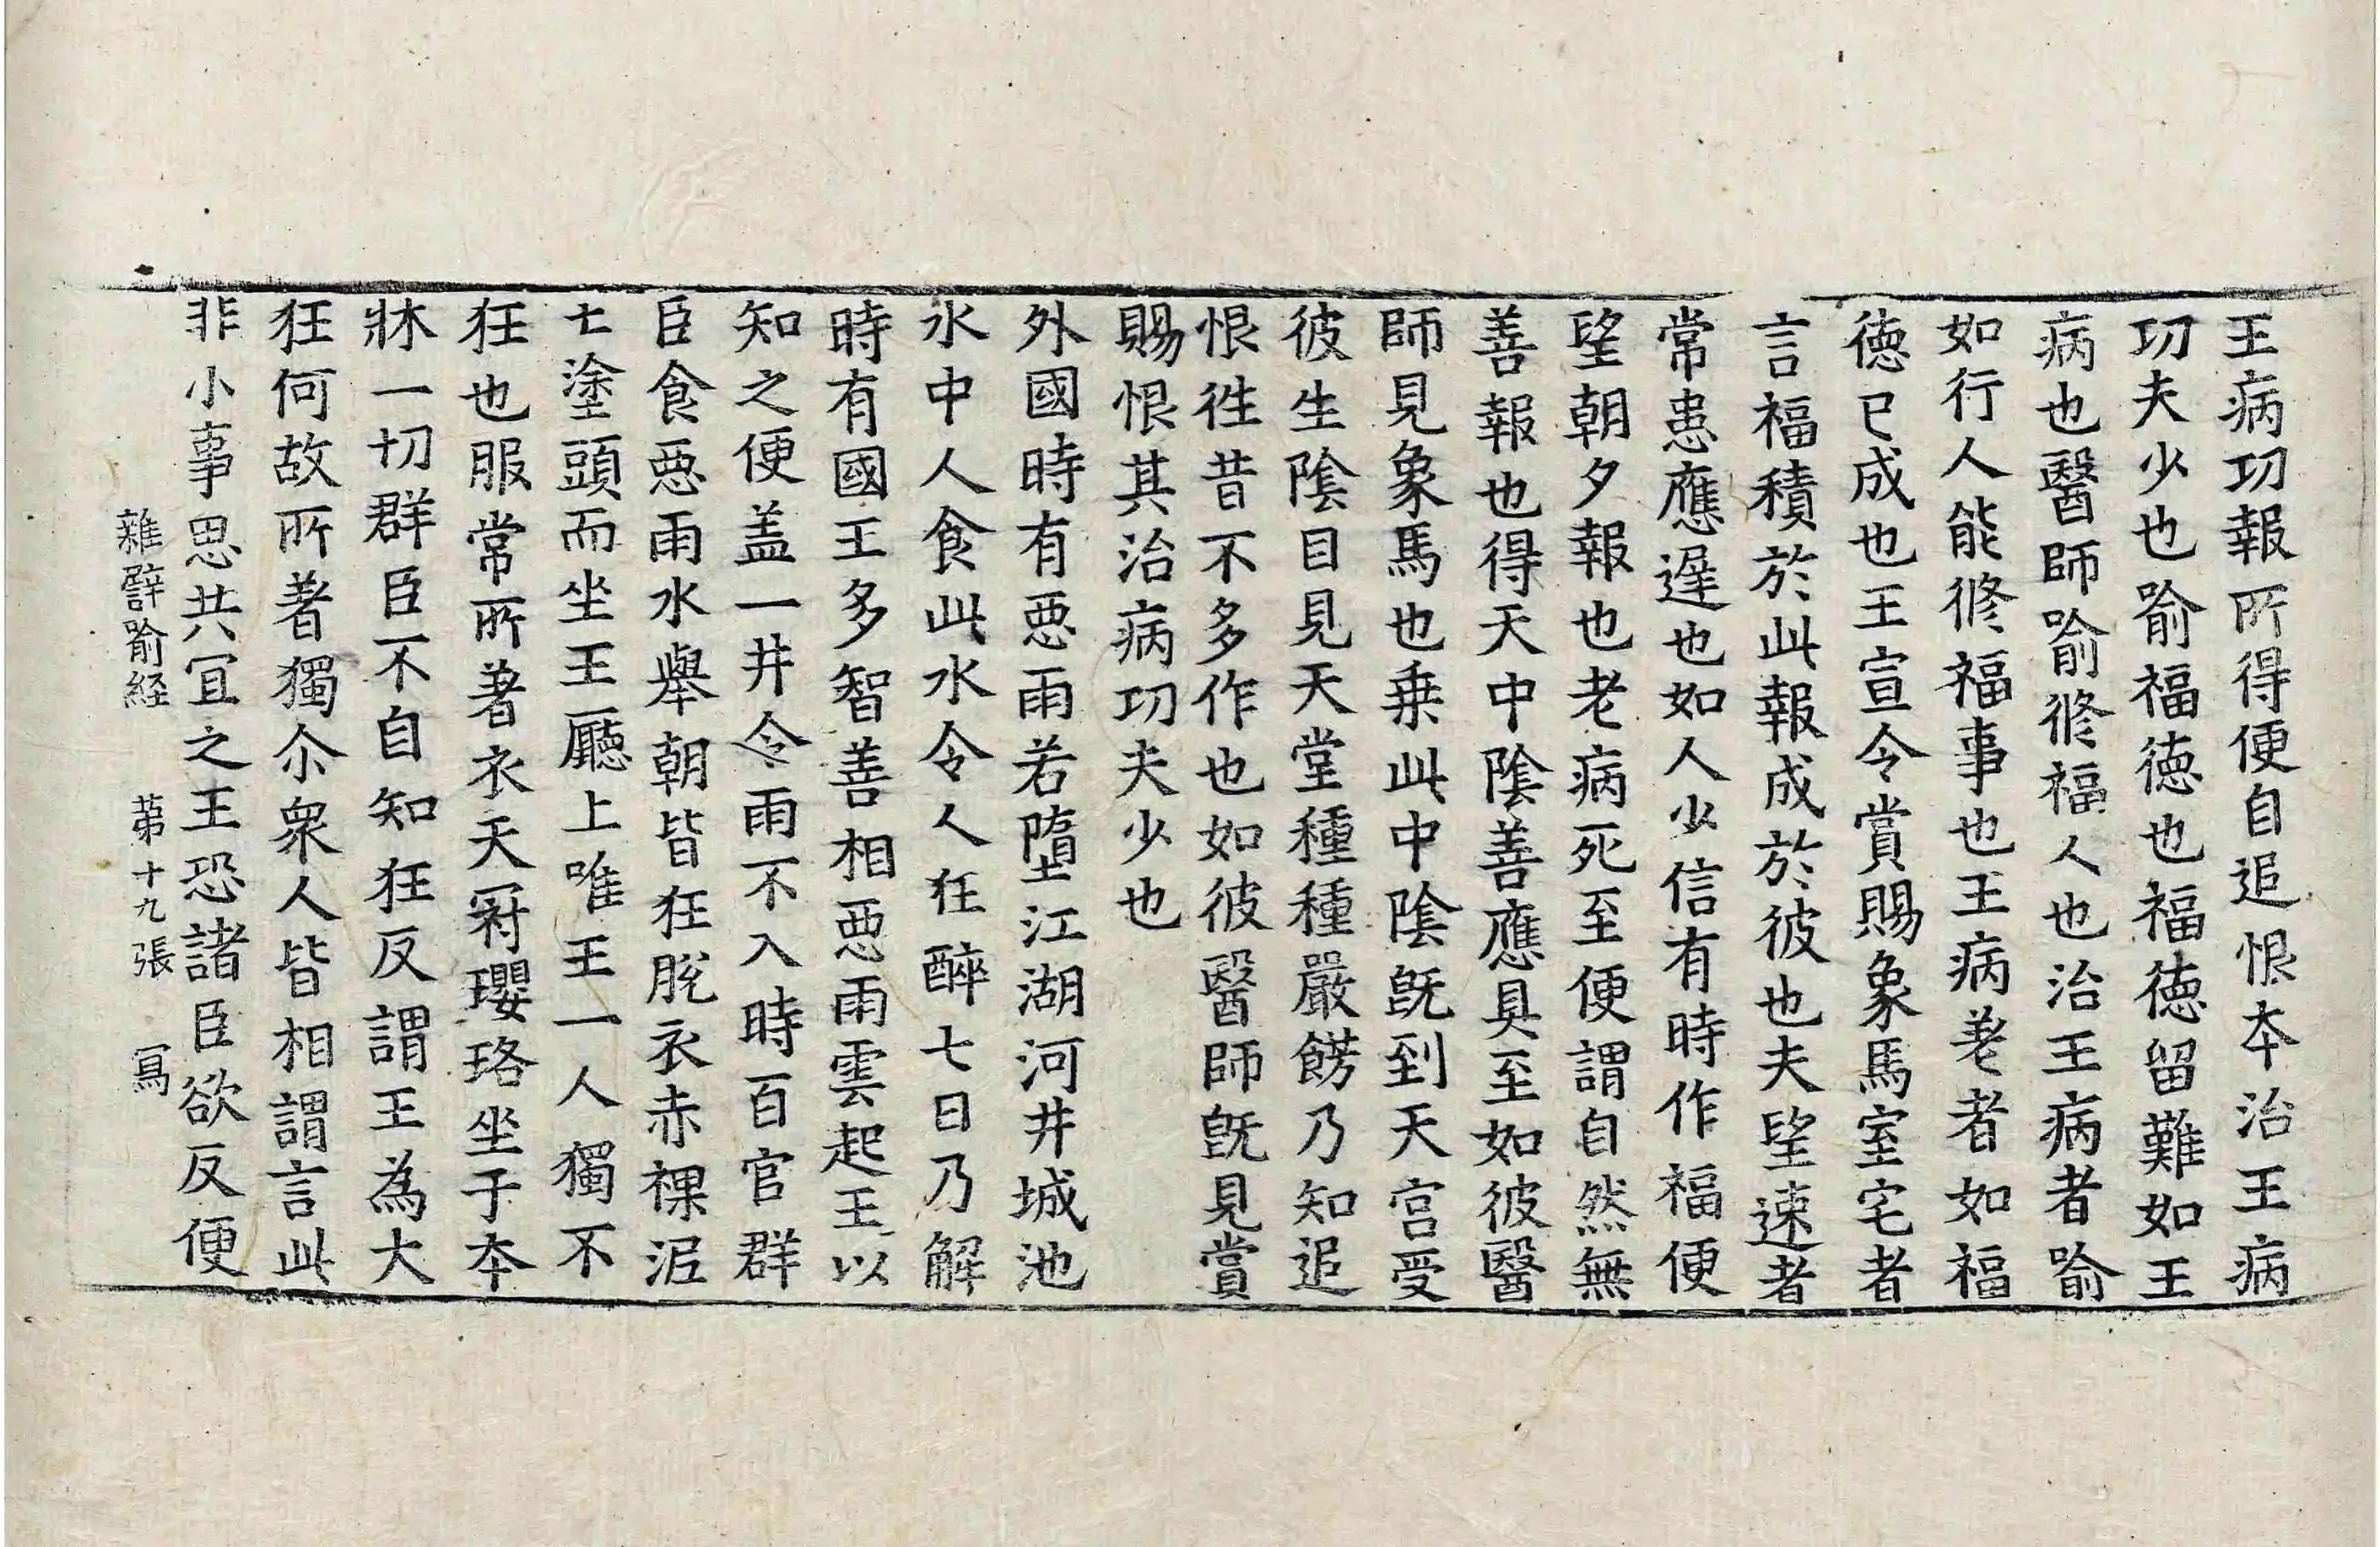 王病功報所得便自追恨夲治王病
功夫少也喻福徳也福徳留難如王
病也醫師喻修福人也治王病者喻
如行人能修福事也王病差者如福
徳已成也王宣令賞賜象馬室宅者
言福積於此報成於彼也夫望速者
常患應遅也如人少信有時作福便
望朝夕報也老病死至便謂自然無
善報也得天中陰善應具至如彼醫
師見象馬也乗此中陰既到天宫受
彼生陰目見天堂種種嚴餝乃知追
恨徃昔不多作也如彼醫師既見賞
賜恨其治病功夫少也
外國時有惡雨若墮江湖河井城池
水中人食此水令人狂醉七日乃解
時有國王多智善相惡雨雲起王以
知之便盖一井令雨不入時百官群
臣食惡雨水舉朝皆狂脫衣赤裸泥
土塗頭而坐王廳上唯王一人獨不
狂也服常所著衣天冠瓔珞坐于夲
牀一切群臣不自知狂反謂王為大
狂何故所著獨尒衆人皆相謂言此
非小事思共冝之王恐諸臣欲反便
雜譬喻経 苐十九張 冩